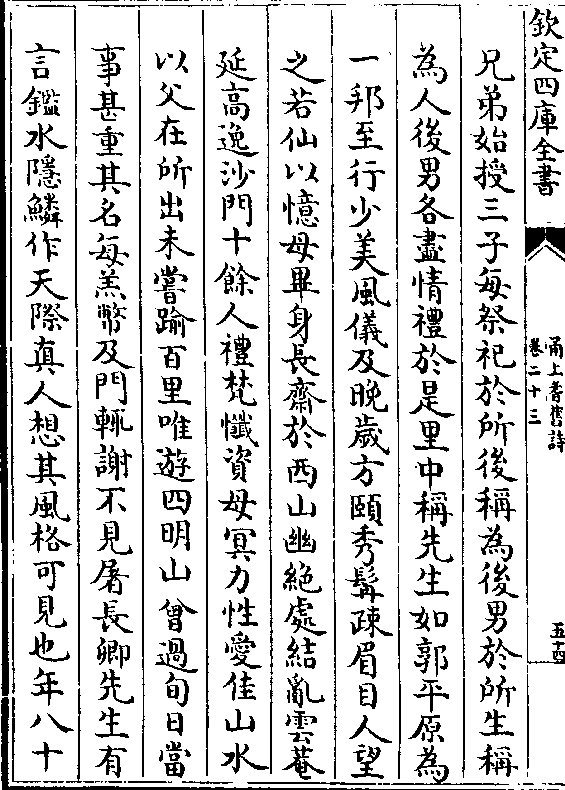 欽定四庫全書
甬上耆舊詩
卷二十三
五十四
兄弟始授三子每祭祀於所後稱為後男於所生稱
為人後男各盡情禮於是里中稱先生如郭平原為
一邦至行少美風儀及晚歲方頤秀髯疎眉目人望
之若仙以憶母畢身長齋於西山幽絕處結亂雲菴
延高逸沙門十餘人禮梵懺資母冥力性愛佳山水
以父在所出未嘗踰百里唯遊四明山曾過旬日當
事甚重其名每羔幣及門輒謝不見屠長卿先生有
言鑑水隱鱗作天際真人想其風格可見也年八十